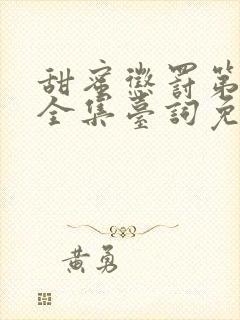 甜蜜懲罰第
全集臺詞免
黃勇